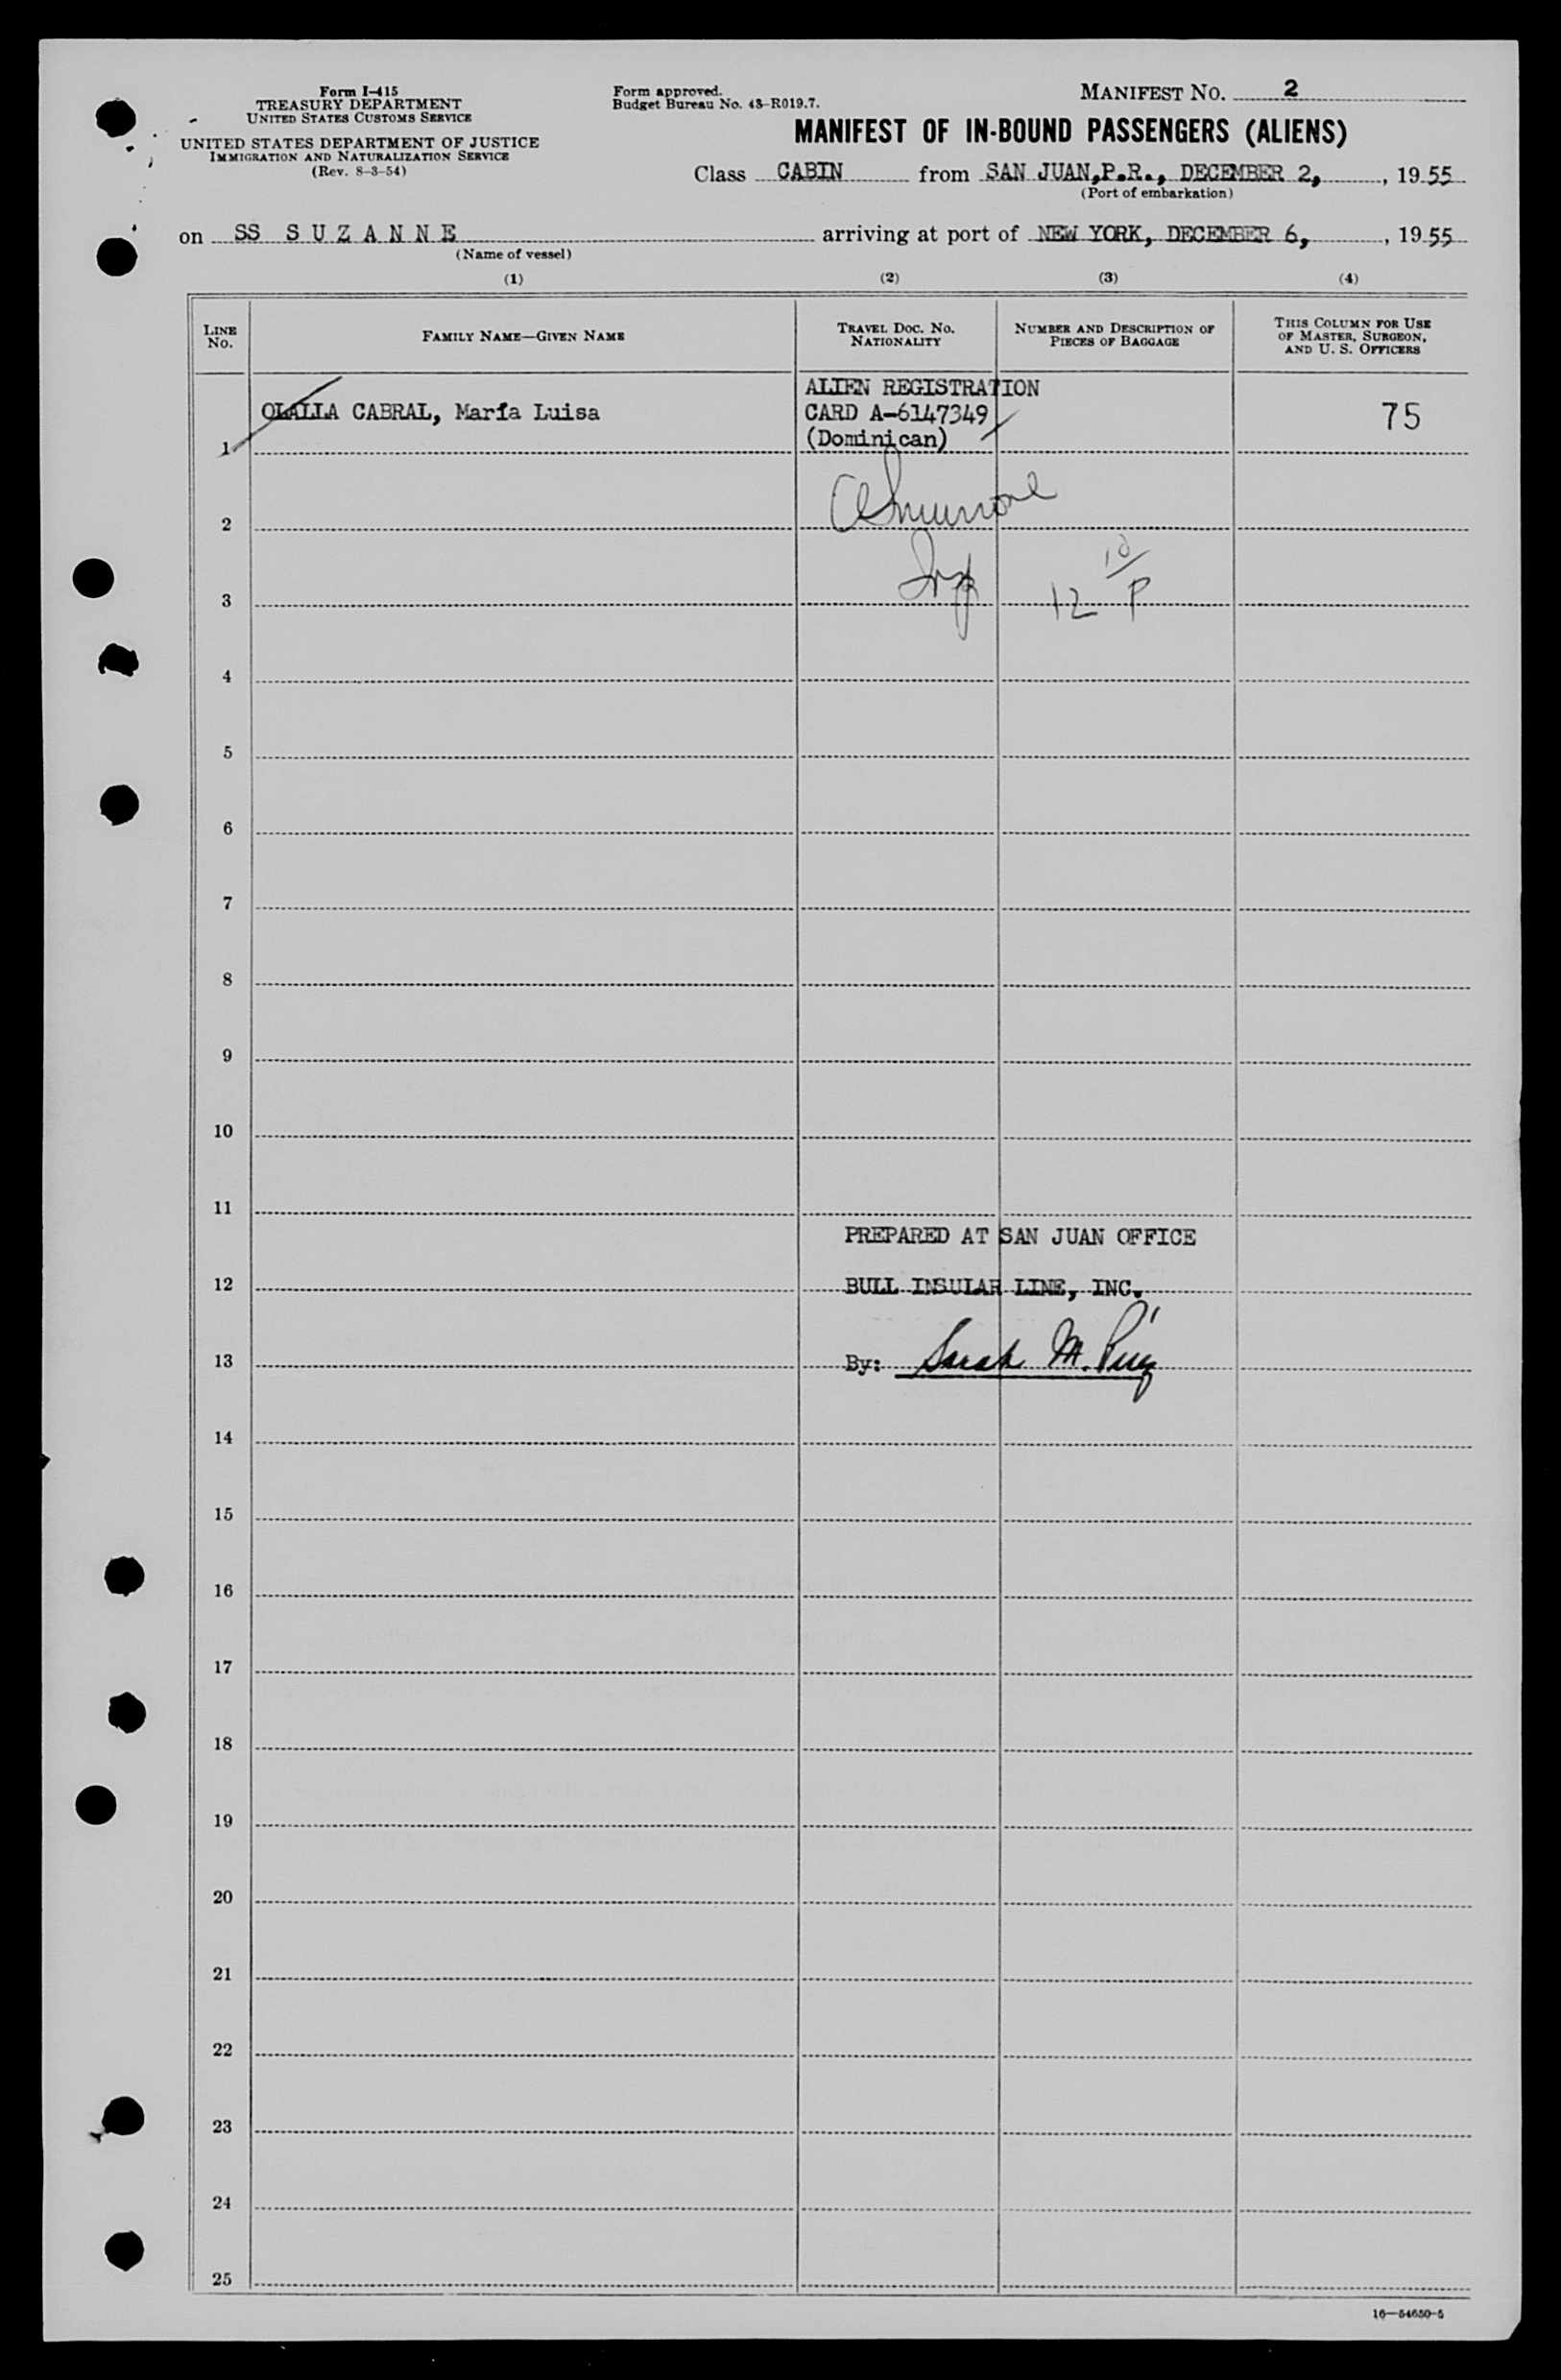 Form I-415
TREASURY DEPARTMENT
UNITED STATES CUSTOMS SERVICE
UNITED STATES DEPARTMENT OF JUSTICE
IMMIGRATION AND NATURALIZATION SERVICE
(Rev. 8-3-54)
Form approved.
Budget Bureau No. 43-R019.7.
MANIFEST NO. 2
MANIFEST OF IN-BOUND PASSENGERS (ALIENS)
Class CABIN from SAN JUAN,P.R., DECEMBER 2, , 19 55
(Port of embarkation)
on SS S U Z A N N E arriving at port of NEW YORK, DECEMBER 6, , 19 55
(Name of vessel)
(1) (2) (3) (4)
LINE NO.
FAMILY NAME—GIVEN NAME
TRAVEL DOC. NO.
NATIONALITY
NUMBER AND DESCRIPTION OF
PIECES OF BAGGAGE
THIS COLUMN FOR USE
OF MASTER, SURGEON,
AND U. S. OFFICERS
ALIEN REGISTRATION
OLALLA CABRAL, María Luisa CARD A-6147349 75
1 (Dominican)
2
3 12 10/P
4
5
6
7
8
9
10
11
PREPARED AT SAN JUAN OFFICE
12 BULL INSULAR LINE, INC.
13 By: Sarah M.
14
15
16
17
18
19
20
21
22
23
24
25
16—54650-5